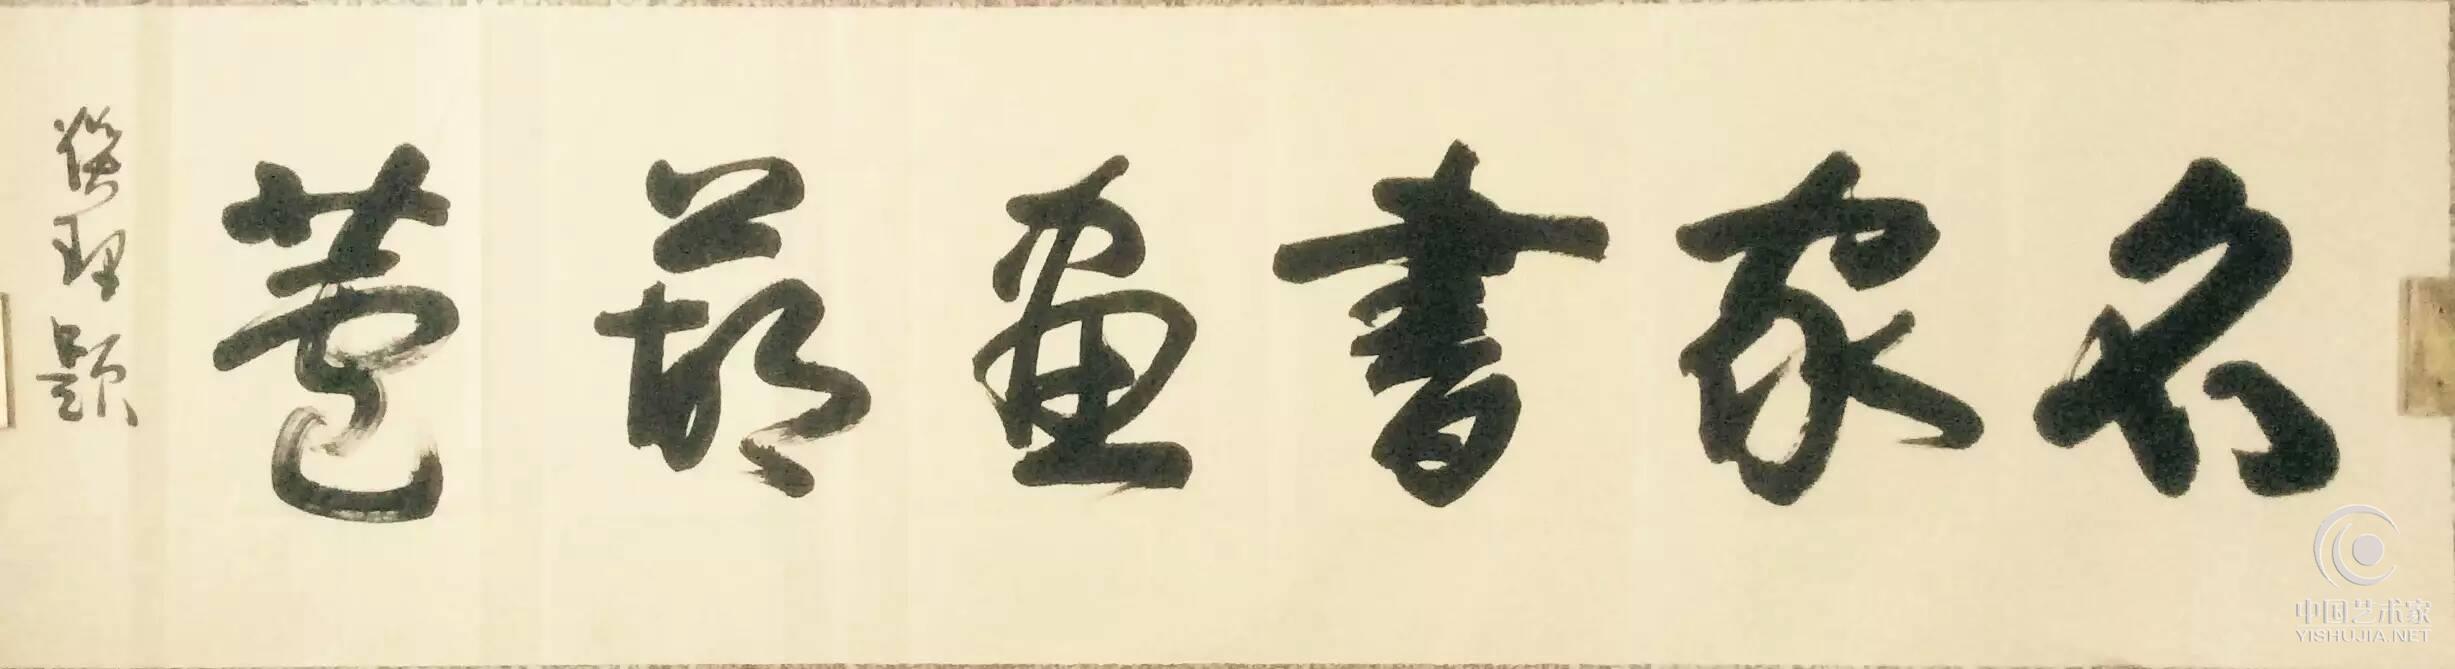 名家書畫葫蘆
理題
中国艺术家
YISHUJIA.NET